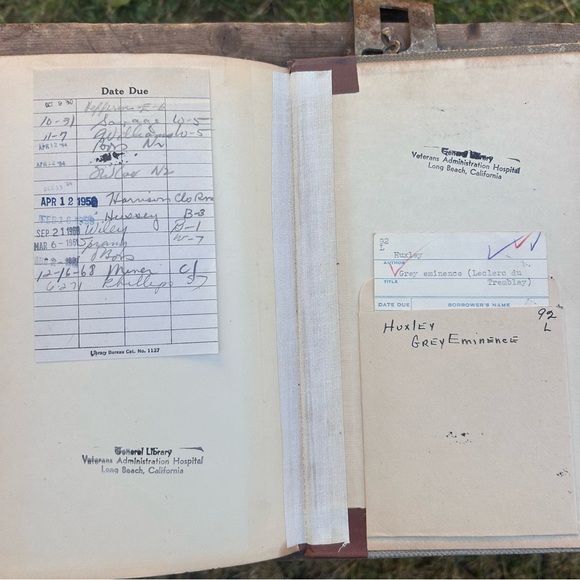 Date Due
OCT 9 '50 Jefferson E-6
10-31 Savage W-5
11-7 Williams W-5
APR 12 '54 N2
APR 12 '54
N2
APR 12 1956 Harrison Clo Rm
1958 Hussey B-3
SEP 21 19 Wiley D-1
MAR 6 - 19 W-7
12-16-68 Miner C1
6-271 Phillips 57
Library Bureau Cat. No. 1127
General Library
Veterans Administration Hospital
Long Beach, California
General Library
Veterans Administration Hospital
Long Beach, California
92
L
Huxley
AUTHOR
Grey eminence (Leclerc du
TITLE
Tremblay)
DATE DUE BORROWER'S NAME
92
HUXLEY L
GREY EMINENCE